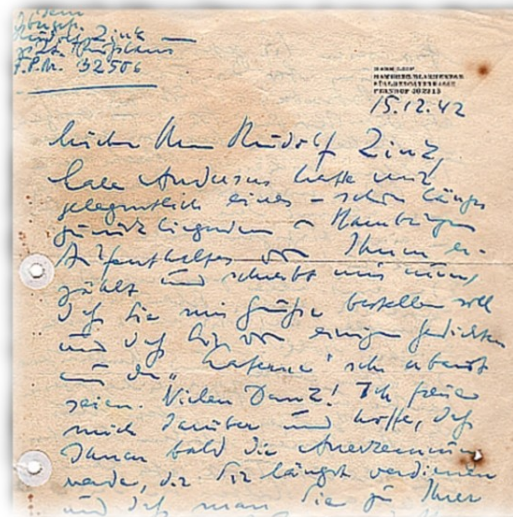 Rudolf Zink
F.P.N. 32506
HAMBURG-BLANKENESE
15.12.42
Lieber Herr Rudolf Zink,
Lale Andersen hatte mir
gelegentlich eines – schon länger
zurückliegenden – Hamburger
Aufenthaltes von Ihnen er-
zählt und schreibt mir nun,
daß Sie mir Grüße bestellen soll
und daß Sie von einigen Gedichten
aus der „Laterne" sehr erbaut
seien. Vielen Dank! Ich freue
mich darüber und hoffe, daß
Ihnen bald die Anerkennung
werde, die Sie längst verdienen
und daß man Sie zu Ihrer